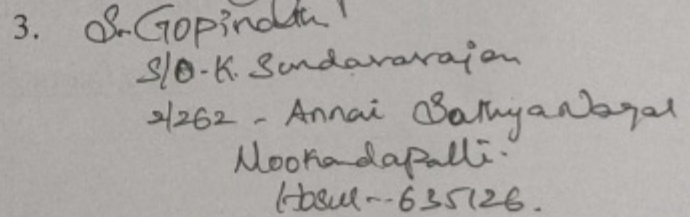 3. S. Gopinath
S/O - K. Sundararajan
2/262 - Annai Sathya Nagar
Mookandapalli.
Hosur - 635126.